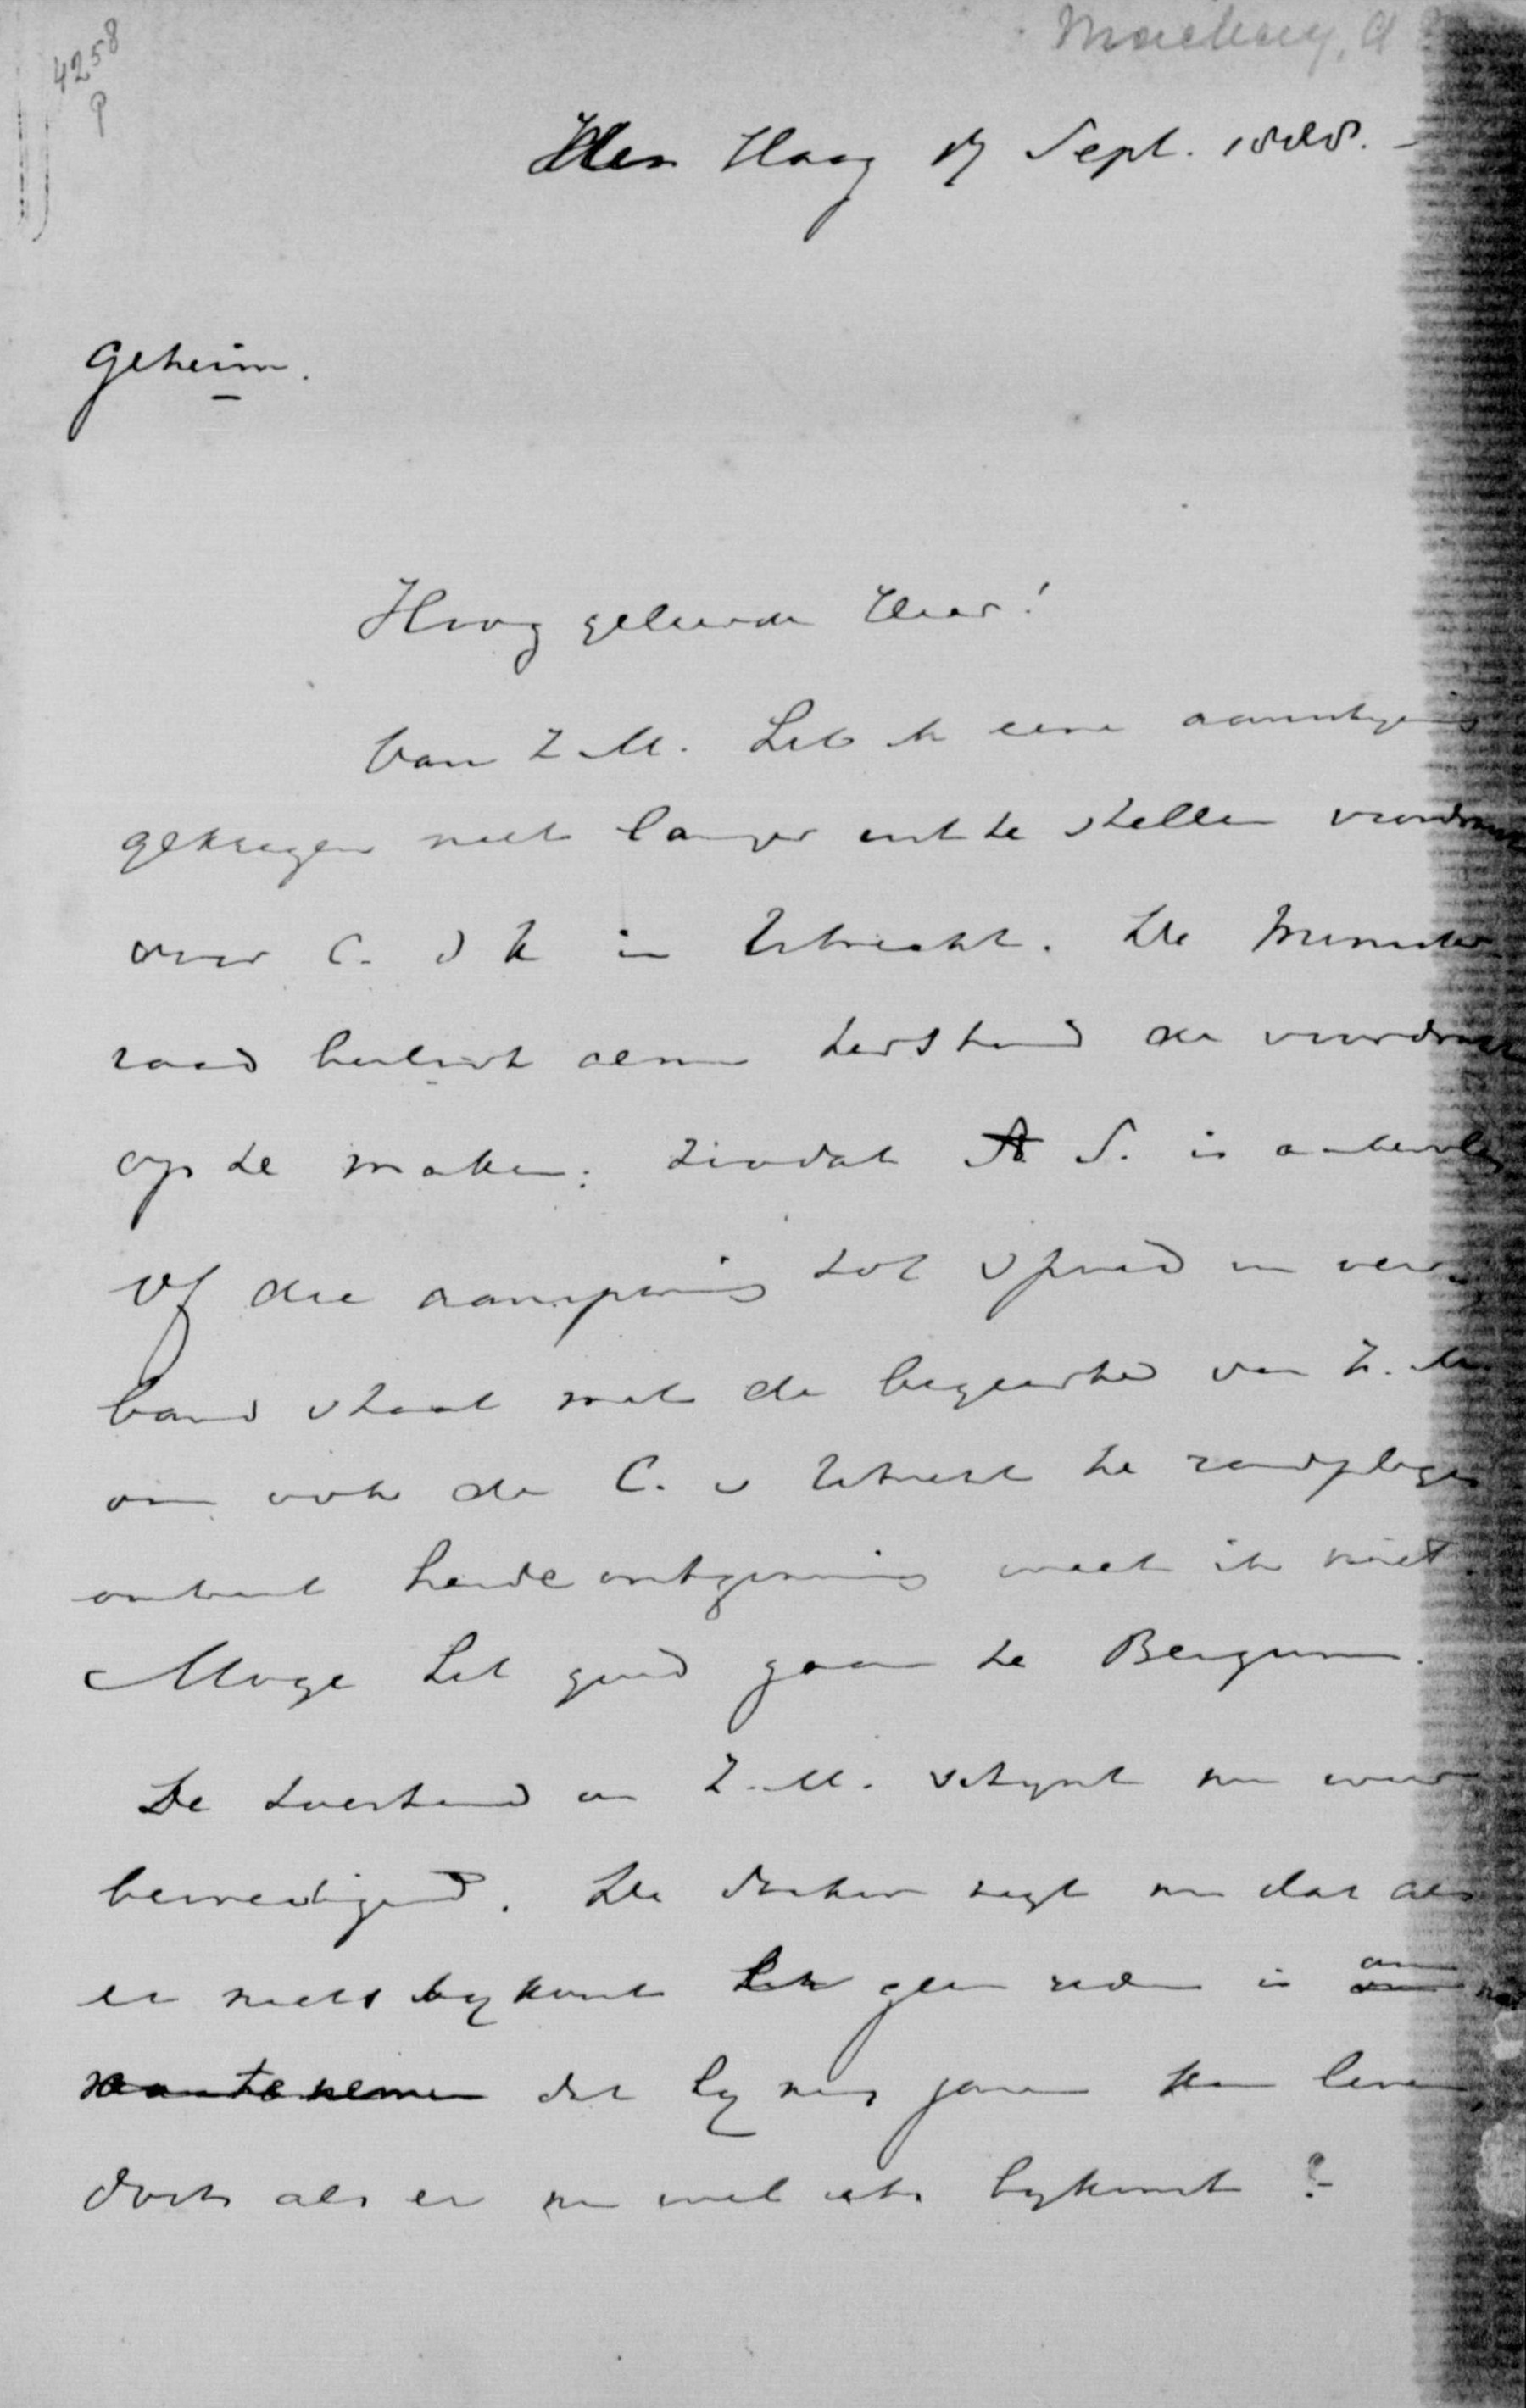 4258
P
Den Haag 17 Sept. 1888.
Geheim.
Hoog geleerde Heer!
Van Z. M. heb ik eene aanwijzing
gekregen niet langer uit te stellen voordracht
over C. d K in Utrecht. De Minister
raad besloot alsnu terstond de voordracht
op te maken: zoodat S. is aanbevolen
Of die aansporing tot spoed in ver-
band staat met de begeerte van Z. M.
om ook de C. v Utrecht te raadplegen
omtrent weet ik niet.
Moge het goed gaan te Bergum.
De toestand van Z. M. schijnt nu weer
bevredigend. De dokter zegt nu dat als
er niets bijkomt er geen reden is aan
te nemen dat hij nog jaren kan leven,
doch als er nu wel iets bijkomt?